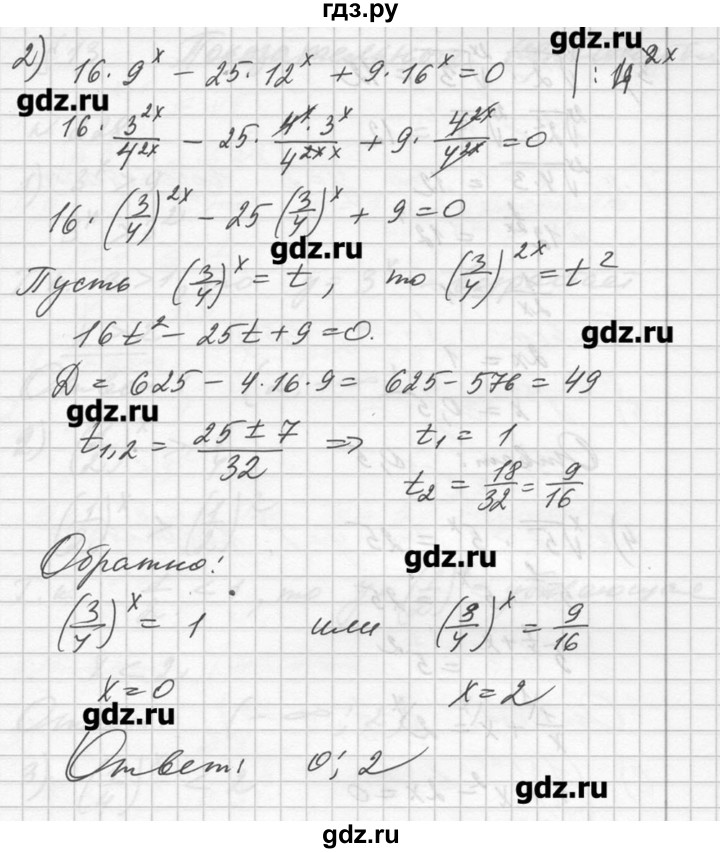 гдз.ру
2) 16 · 9^x − 25 · 12^x + 9 · 16^x = 0 | : 4^{2x}
gdz.ru
gdz.ru
16 · 3^{2x}/4^{2x} − 25 · 4^x · 3^x/4^{2x} + 9 · 4^{2x}/4^{2x} = 0
16 · (3/4)^{2x} − 25 (3/4)^x + 9 = 0
gdz.ru
Пусть (3/4)^x = t, то (3/4)^{2x} = t^2
16t^2 − 25t + 9 = 0.
gdz.ru
Д = 625 − 4 · 16 · 9 = 625 − 576 = 49
gdz.ru
t_{1,2} = (25 ± 7)/32 => t_1 = 1
t_2 = 18/32 = 9/16
Обратно:
gdz.ru
(3/4)^x = 1 или (3/4)^x = 9/16
x = 0 x = 2
gdz.ru
Ответ: 0; 2
gdz.ru
gdz.ru